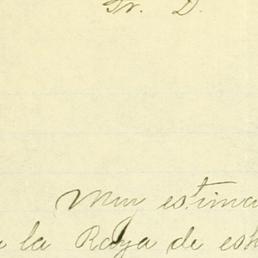 Sr. D.
Muy estima
a la Raya de est